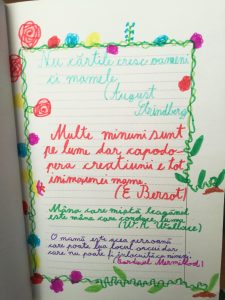 Nu cărțile cresc oameni
ci mamele.
(August
Strindberg
Multe minuni sunt
pe lume dar capodo-
pera creatiunii e tot
inima unei mame
(E Bersot)
Mâna care mișcă leagănul
este mâna care conduce lumea
(W. R. Wallace)
O mamă este acea persoană
care poate lua locul oricui dar
care nu poate fi înlocuită de nimeni
(Cardinal Mermillod)